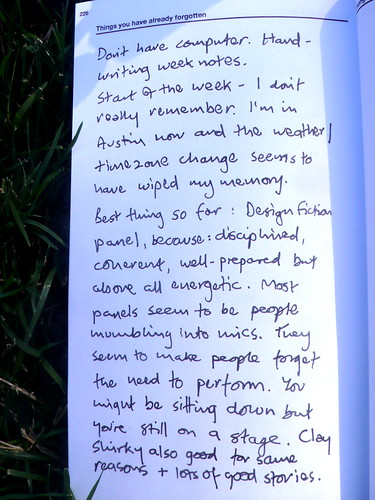 226
Things you have already forgotten
Don't have computer. Hand-
writing week notes.
Start of the week - I don't
really remember. I'm in
Austin now and the weather/
timezone change seems to
have wiped my memory.
Best thing so far: Design fiction
panel, because: disciplined,
coherent, well-prepared but
above all energetic. Most
panels seem to be people
mumbling into mics. They
seem to make people forget
the need to perform. You
might be sitting down but
you're still on a stage. Clay
Shirky also good for same
reasons + lots of good stories.